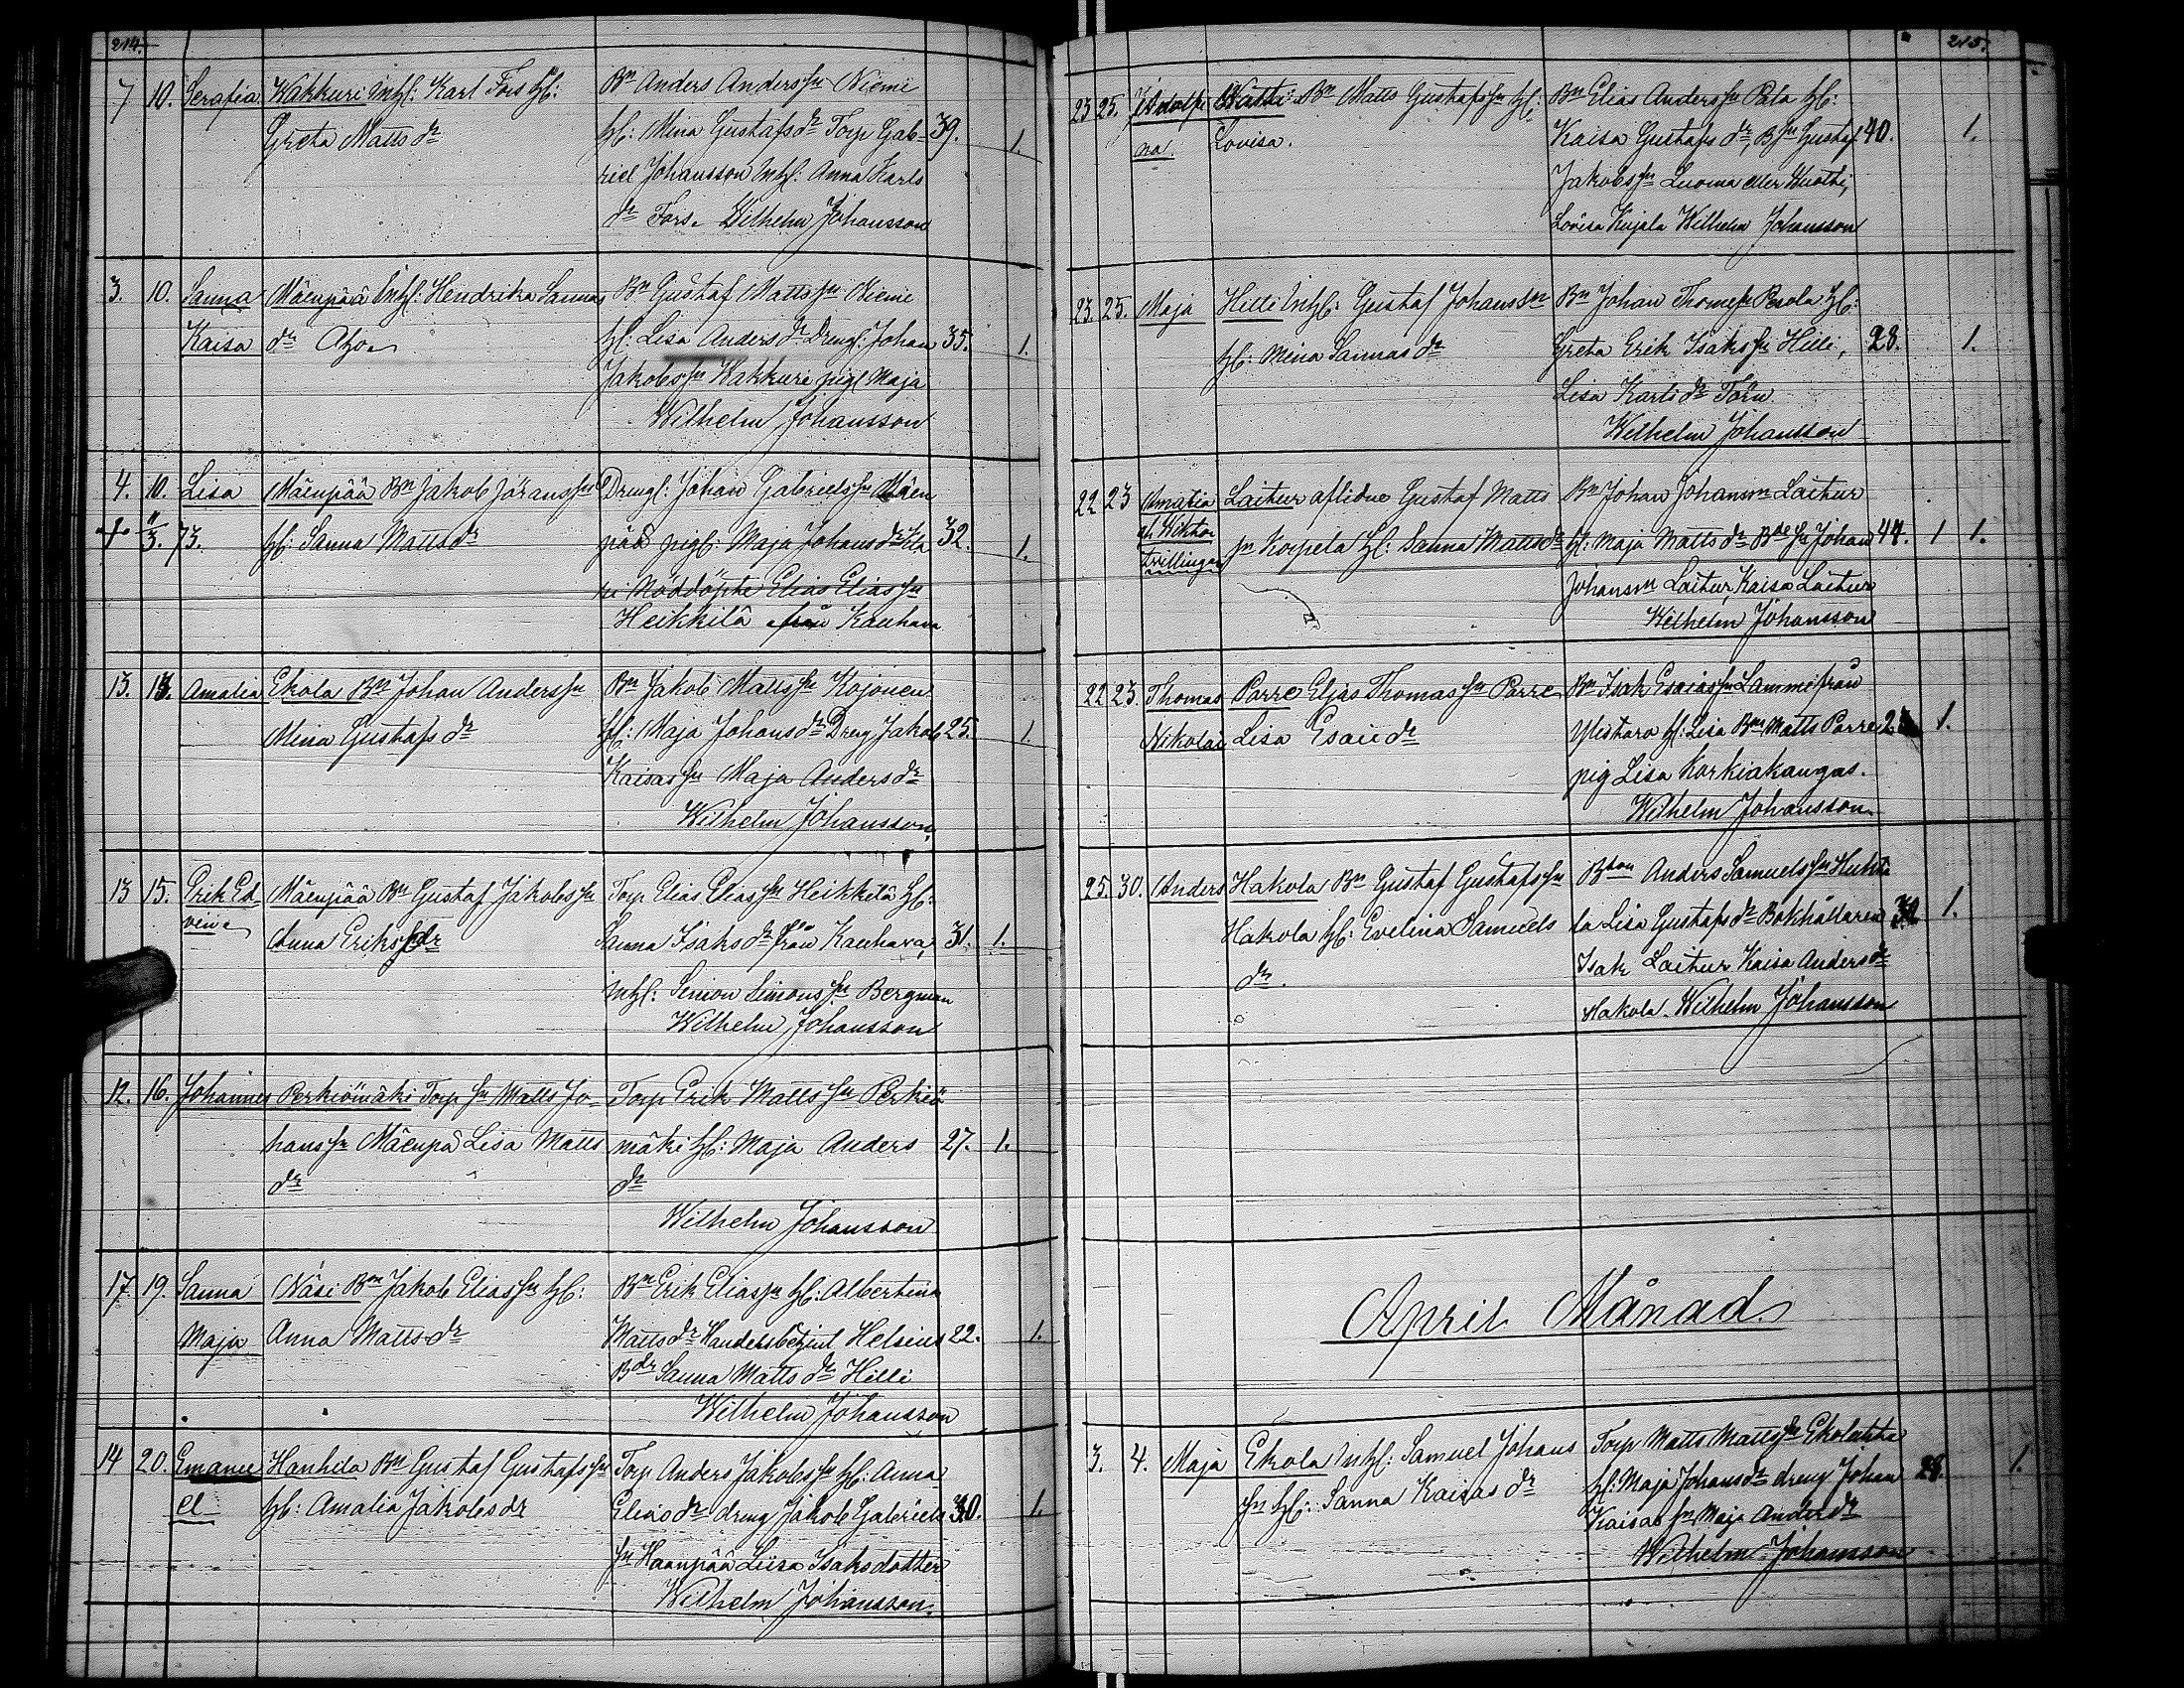 214.
7 10. Serafia Wakkuri Inhs: Karl Fors hb:
Greta Matts dr
Bn Anders Anders sn Niemi
hb: Mina Gustafs dr Torp Gab- 39. 1.
riel Johansson Inhs: Anna Karls
dr Fors. Wilhelm Johansson
3. 10. Sanna Mäenpää Inhs: Hendrika Sanna
Kaisa dr Aho
Bn Gustaf Matts sn Niemi
hb: Lisa Anders dr Dreng: Johan 35. 1.
Jakobs sn Wakkuri pig Maja
Wilhelm Johansson
4. 10. Lisa Mäenpää Bn Jakob Jörans sn
+ 11/3. 73. hb: Sanna Matts dr
Drengs: Johan Gabriels sn Mäen
pää pigs: Maja Johans dr 32. 1.
Nöddöpte Elias Elias sn
Heikkilä från Kauhava
13. 13. Amalia Ekola Bn Johan Anders sn
Mina Gustafs dr
Bn Jakob Matts sn Kojonen
hb: Maja Johans dr Dreng Jakob 25. 1.
Kaisas sn Maja Anders dr
Wilhelm Johansson
13 15. Erik Ed-
vein
Mäenpää Bn Gustaf Jakobs sn
Anna Eriks dr
Torp Elias Elias sn Heikkilä hb:
Sanna Isaks dr från Kauhava, 31. 1.
Inhs: Simon Simons sn Bergman
Wilhelm Johansson
12. 16. Johannes Perkiömäki Torp sn Matts Jo-
hans sn Mäenpä Lisa Matts
dr
Torp Erik Matts sn Perkiö
mäki hb: Maja Anders 27. 1.
dr
Wilhelm Johansson
17. 19. Sanna Näsi Bn Jakob Elias sn hb:
Maja Anna Matts dr
Bn Erik Elias sn hb: Albertina
Matts dr Handelsbetjent Helsius 22. 1.
Bdr Sanna Matts dr Hilli
Wilhelm Johansson
14 20. Emanu
el
Hanhila Bn Gustaf Gustafs sn
hb: Amalia Jakobs dr
Torp Anders Jakobs sn hb: Anna
Elias dr dreng Jakob Gabriels 30. 1.
sn Haanpää Liisa Isaksdotter
Wilhelm Johansson.
215.
23 25. Adolfi
na
Watti Bn Matts Gustafs sn hb:
Lovisa.
Bn Elias Anders sn Pata hb:
Kaisa Gustafs dr, B sn Gustaf 40. 1.
Jakobs sn Luoma eller Wuothi,
Lovisa Kujala Wilhelm Johansson
23. 25. Maja Hilli Inhs: Gustaf Johanssn
hb: Mina Sannas dr
Bn Johan Thome sn hb:
Greta Erik Isaks sn Hilli, 28. 1.
Lisa Karls dr Törn
Wilhelm Johansson
22 23 Amalia
och Wiktor
Tvillingar
Laitur aflidne Gustaf Matts
sn Korpela hb: Sanna Matts dr
Bn Johan Johanssn Laitur
hb: Maja Matts dr Bde sn Johan 44. 1 1.
Johanssn Laitur, Kaisa Laitur
Wilhelm Johansson
22 23. Thomas Parre Elias Thomas sn Parre
Nikolai Lisa Esaie dr
Bn Isak Esaias sn Lammi från
Ylistaro hb: Lisa Bn Matts Parre 1.
pig Lisa Korkiakangas.
Wilhelm Johansson
25. 30. Anders Hakola Bn Gustaf Gustafs sn
Hakola hb: Evelina Samuels
dr.
Bson Anders Samuels sn Huhta
la Lisa Gustafs dr Bokhållaren 30 1.
Isak Laitur Kaisa Anders dr
Hakola. Wilhelm Johansson
April Månad
3. 4. Maja Ekola Inhs: Samuel Johans
sn hb: Sanna Kaisas dr
Torp Matts Matts sn Ekola
hb: Maja Johans dr dreng Johan 28. 1.
Kaisas sn Maja Anders dr
Wilhelm Johansson